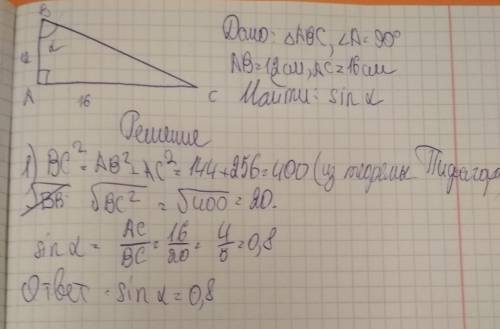 B
α
12
A
16
C
Дано: △ABC, ∠A=90°
AB=12см, AC=16см
Найти: sin α
Решение
1) BC²=AB²+AC²=144+256=400 (из теоремы Пифагора
√BC² = √400 = 20.
sin α = AC/BC = 16/20 = 4/5 = 0,8
Ответ: sin α = 0,8